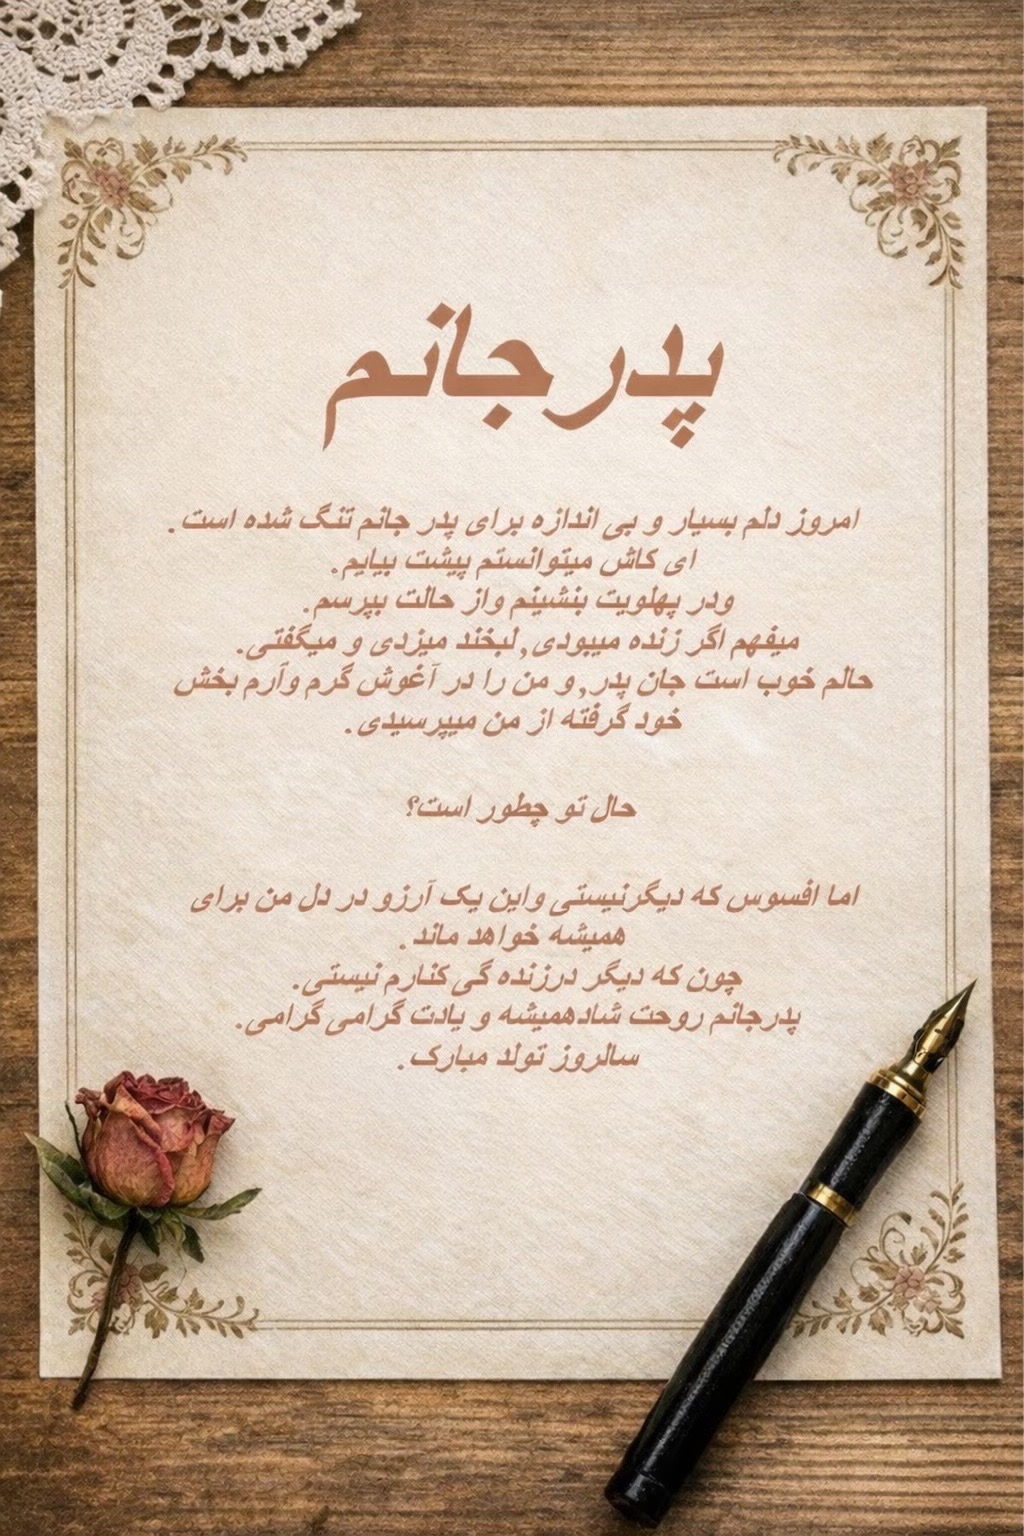 پدر جانم
امروز دلم بسیار و بی اندازه برای پدر جانم تنگ شده است.
ای کاش میتوانستم پیشت بیایم.
ودر پهلویت بنشینم واز حالت بپرسم.
میفهم اگر زنده میبودی,لبخند میزدی و میگفتی.
حالم خوب است جان پدر,و من را در آغوش گرم وآرم بخش
خود گرفته از من میپرسیدی.
حال تو چطور است؟
اما افسوس که دیگرنیستی واین یک آرزو در دل من برای
همیشه خواهد ماند.
چون که دیگر درزنده گی کنارم نیستی.
پدرجانم روحت شادهمیشه و یادت گرامی گرامی.
سالروز تولد مبارک.